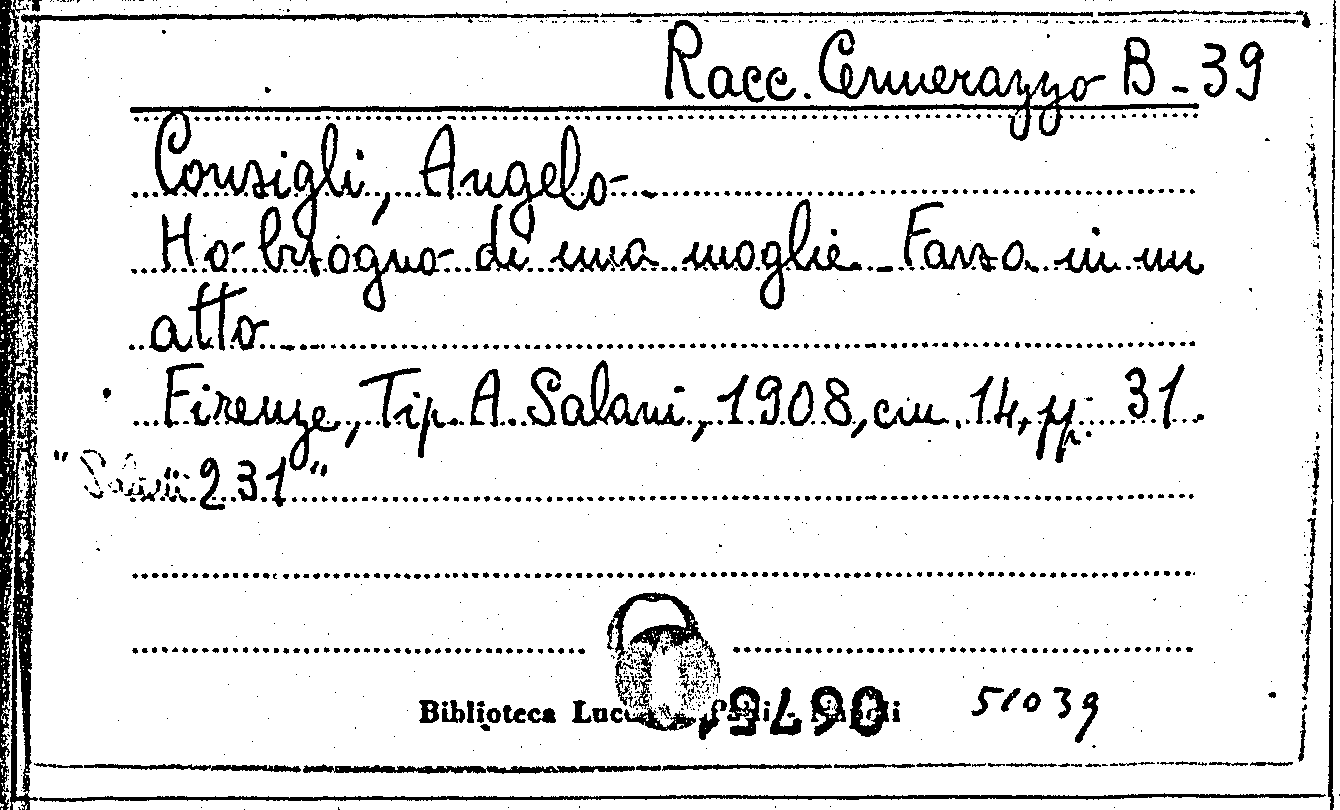 Racc. Cennerazzo B-39
Consigli, Angelo.
Ho bisogno di una moglie. Farsa in un
atto.
Firenze, Tip. A. Salani, 1908, cm. 14, pp. 31.
"Salani 231"
Biblioteca Napoli
51039